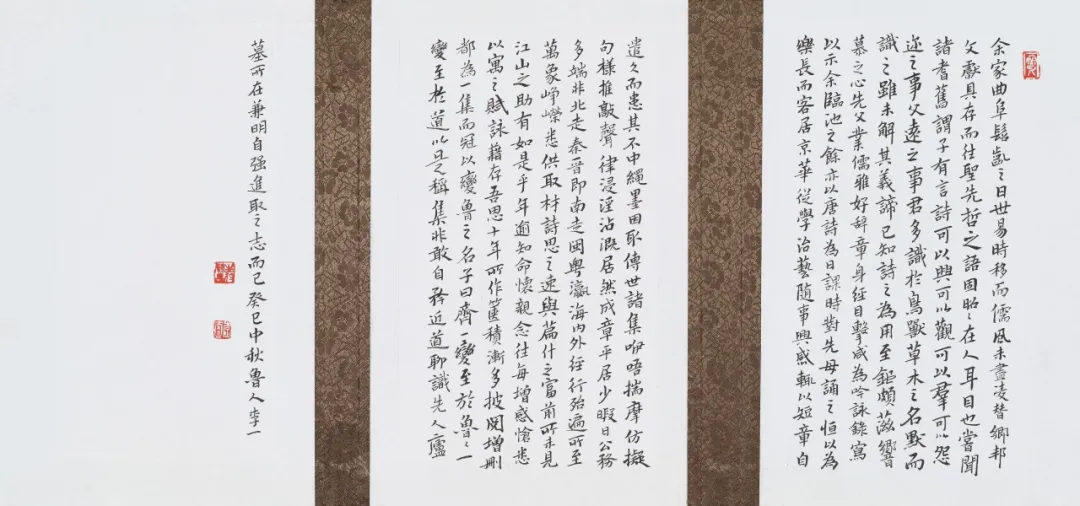 余家曲阜髫齓之日世易時移而儒風未盡凌替鄉邦
文獻具存而往聖先哲之語固昭〻在人耳目也嘗聞
諸耆舊謂子有言詩可以興可以觀可以羣可以怨
迩之事父遠之事君多識於鳥獸草木之名默而
識之雖未解其義諦已知詩之為用至鉅頗滋嚮
慕之心先父業儒雅好辞章身經目擊咸為吟詠錄寫
以示余臨池之餘亦以唐詩為日課時對先母誦之恒以為
樂長而客居京華從學治藝隨事興感輒以短章自
遣久而恚其不中繩墨因取傳世諸集咿唔揣摩仿擬
句樣推敲聲律浸淫沾溉居然成章平居少暇日公務
多端非北走秦晉即南走閩粵瀛海內外經行殆遍所至
萬象崢嶸悉供取材詩思之速與篇什之富前所未見
江山之助有如是乎年逾知命懷親念往每增感愴悉
以寓之賦詠藉存吾思十年所作篋積漸多披閱增刪
都為一集而冠以變魯之名子曰齊一變至於魯〻一
變至於道以是稱集非敢自矜近道聊識先人廬
墓所在兼明自强進取之志而已癸巳中秋魯人李一